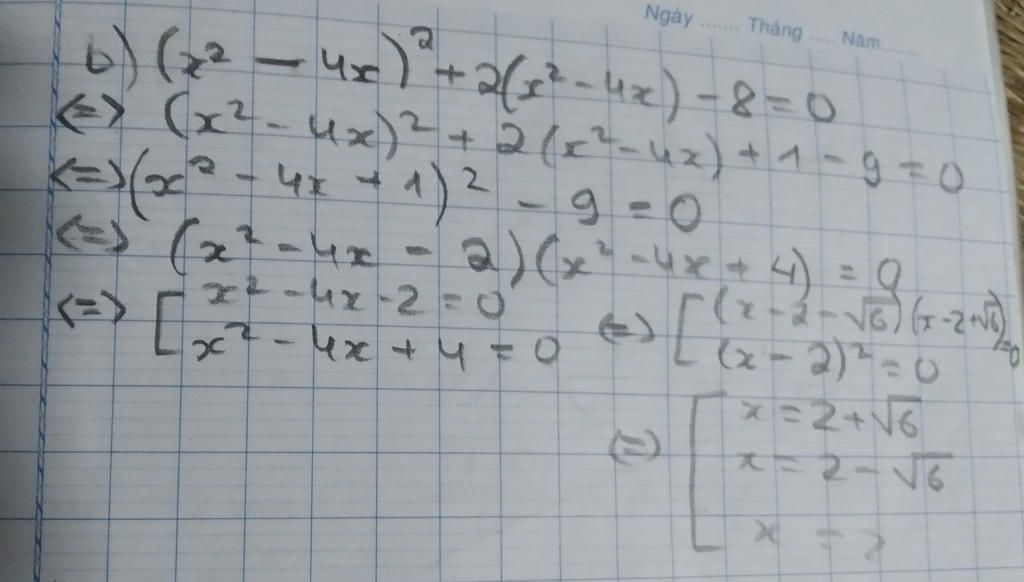 Ngày ....... Tháng ..... Năm.......
b) (x² - 4x)² + 2(x² - 4x) - 8 = 0
<=> (x² - 4x)² + 2(x² - 4x) + 1 - 9 = 0
<=> (x² - 4x + 1)² - 9 = 0
<=> (x² - 4x - 2)(x² - 4x + 4) = 0
<=> [ x² - 4x - 2 = 0 <=> [ (x - 2 - √6)(x - 2 + √6) = 0
x² - 4x + 4 = 0 (x - 2)² = 0
<=> [ x = 2 + √6
x = 2 - √6
x = 2